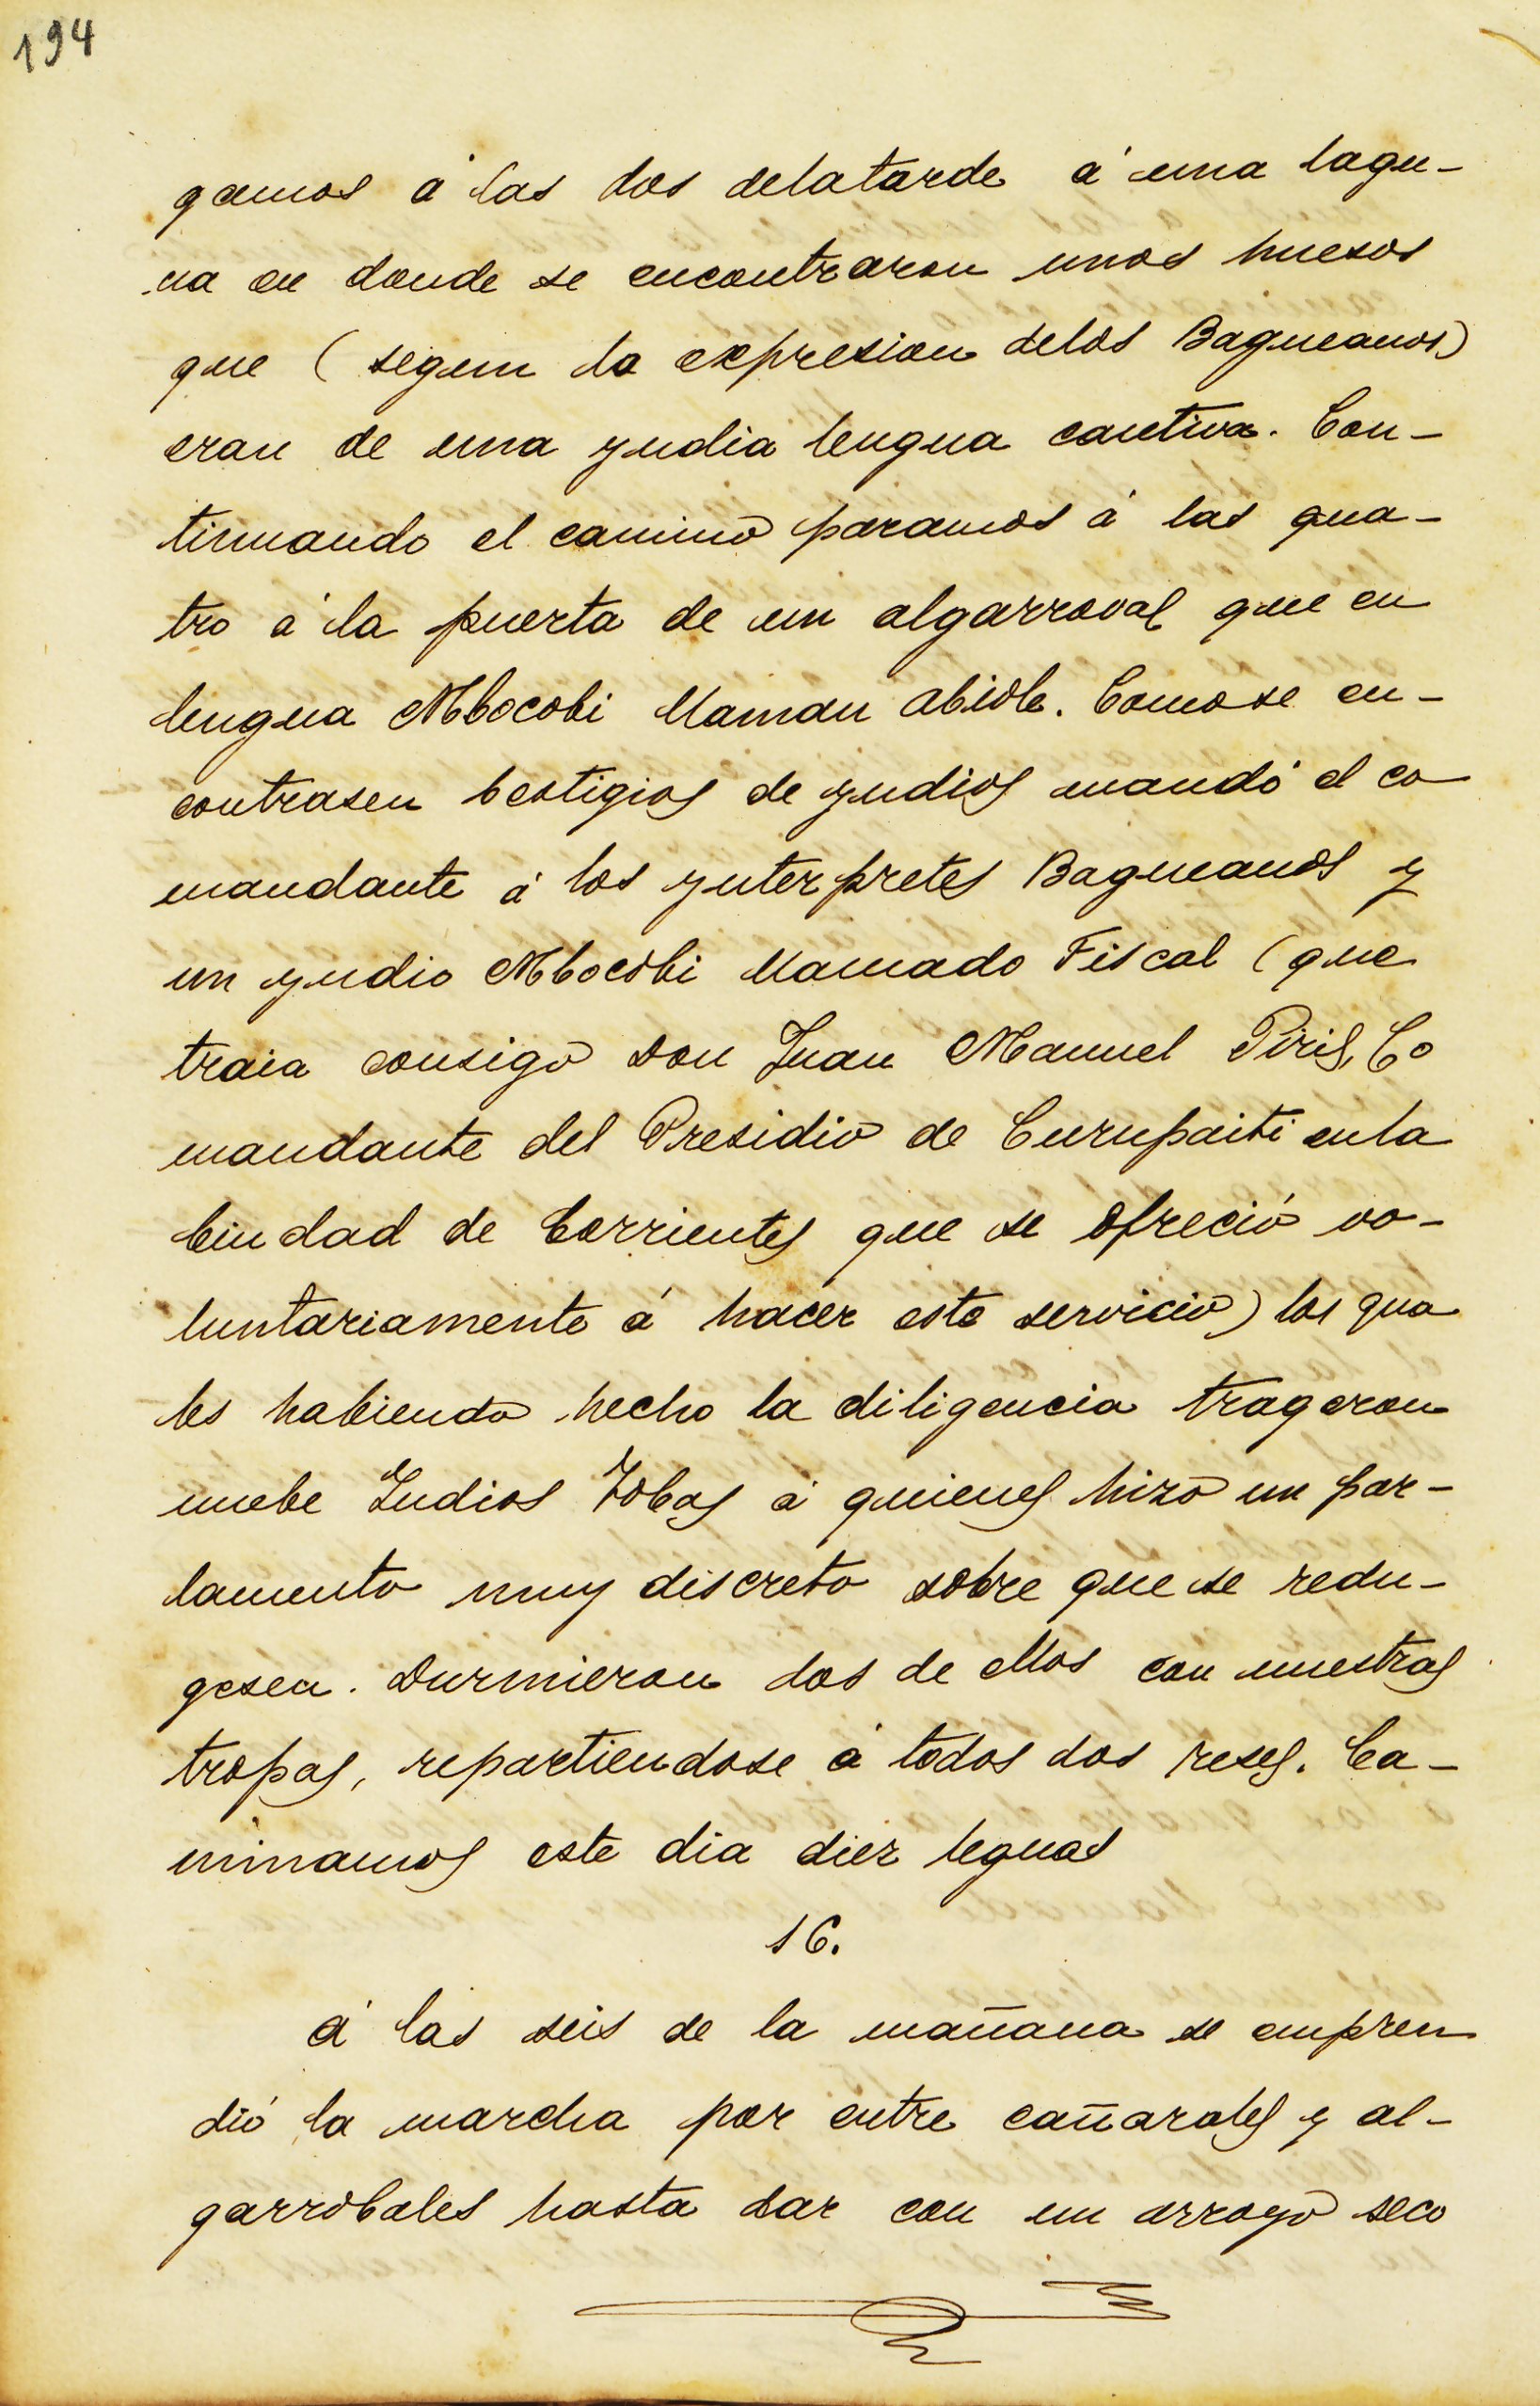 194
gamos á las dos delatarde á una lagu-
na en donde se encontraron unos huesos
que (segun la expresion delos Bagueanos)
eran de una yndia lengua cautiva. Con-
tinuando el camino paramos á las qua-
tro á la puerta de un algarroval que en
lengua Mbocobi llaman abiole. Comose en-
contrasen bestigios de yndios mandó el co
mandante á los ynterpretes Bagueanos y
un yndio Mbocobi llamado Fiscal (que
traia consigo Don Juan Manuel Piris, Co
mandante del Presidio de Curupaiti enla
Ciudad de Corrientes que se ofreció vo-
luntariamente á hacer este servicio) los qua
les habiendo hecho la diligencia trageron
nuebe Indios Tobas á quienes hizo un par-
lamento muy discreto sobre que se redu-
gesen. Durmieron dos de ellos con nuestras
tropas, repartiendose á todos dos reses. Ca-
minamos este dia diez leguas
16.
á las seis de la mañana se empren
dió la marcha por entre cañarales y al-
garrobales hasta dar con un arroyo seco